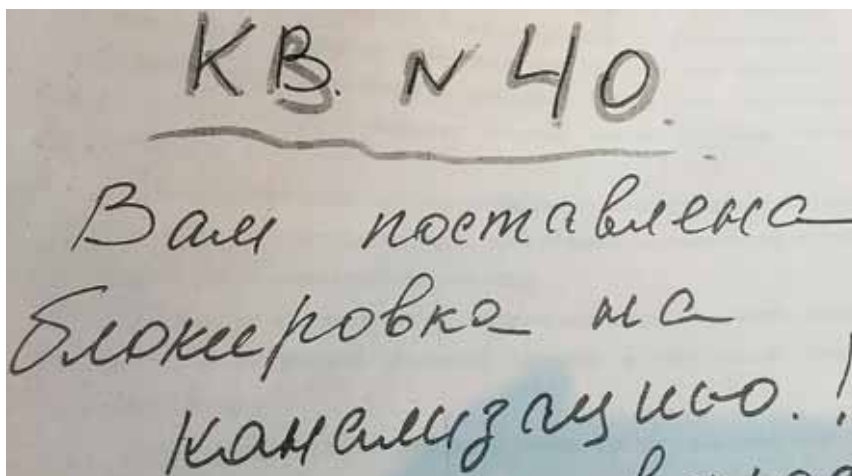 КВ. N 40.
Вам поставлена
блокировка на
канализацию.!